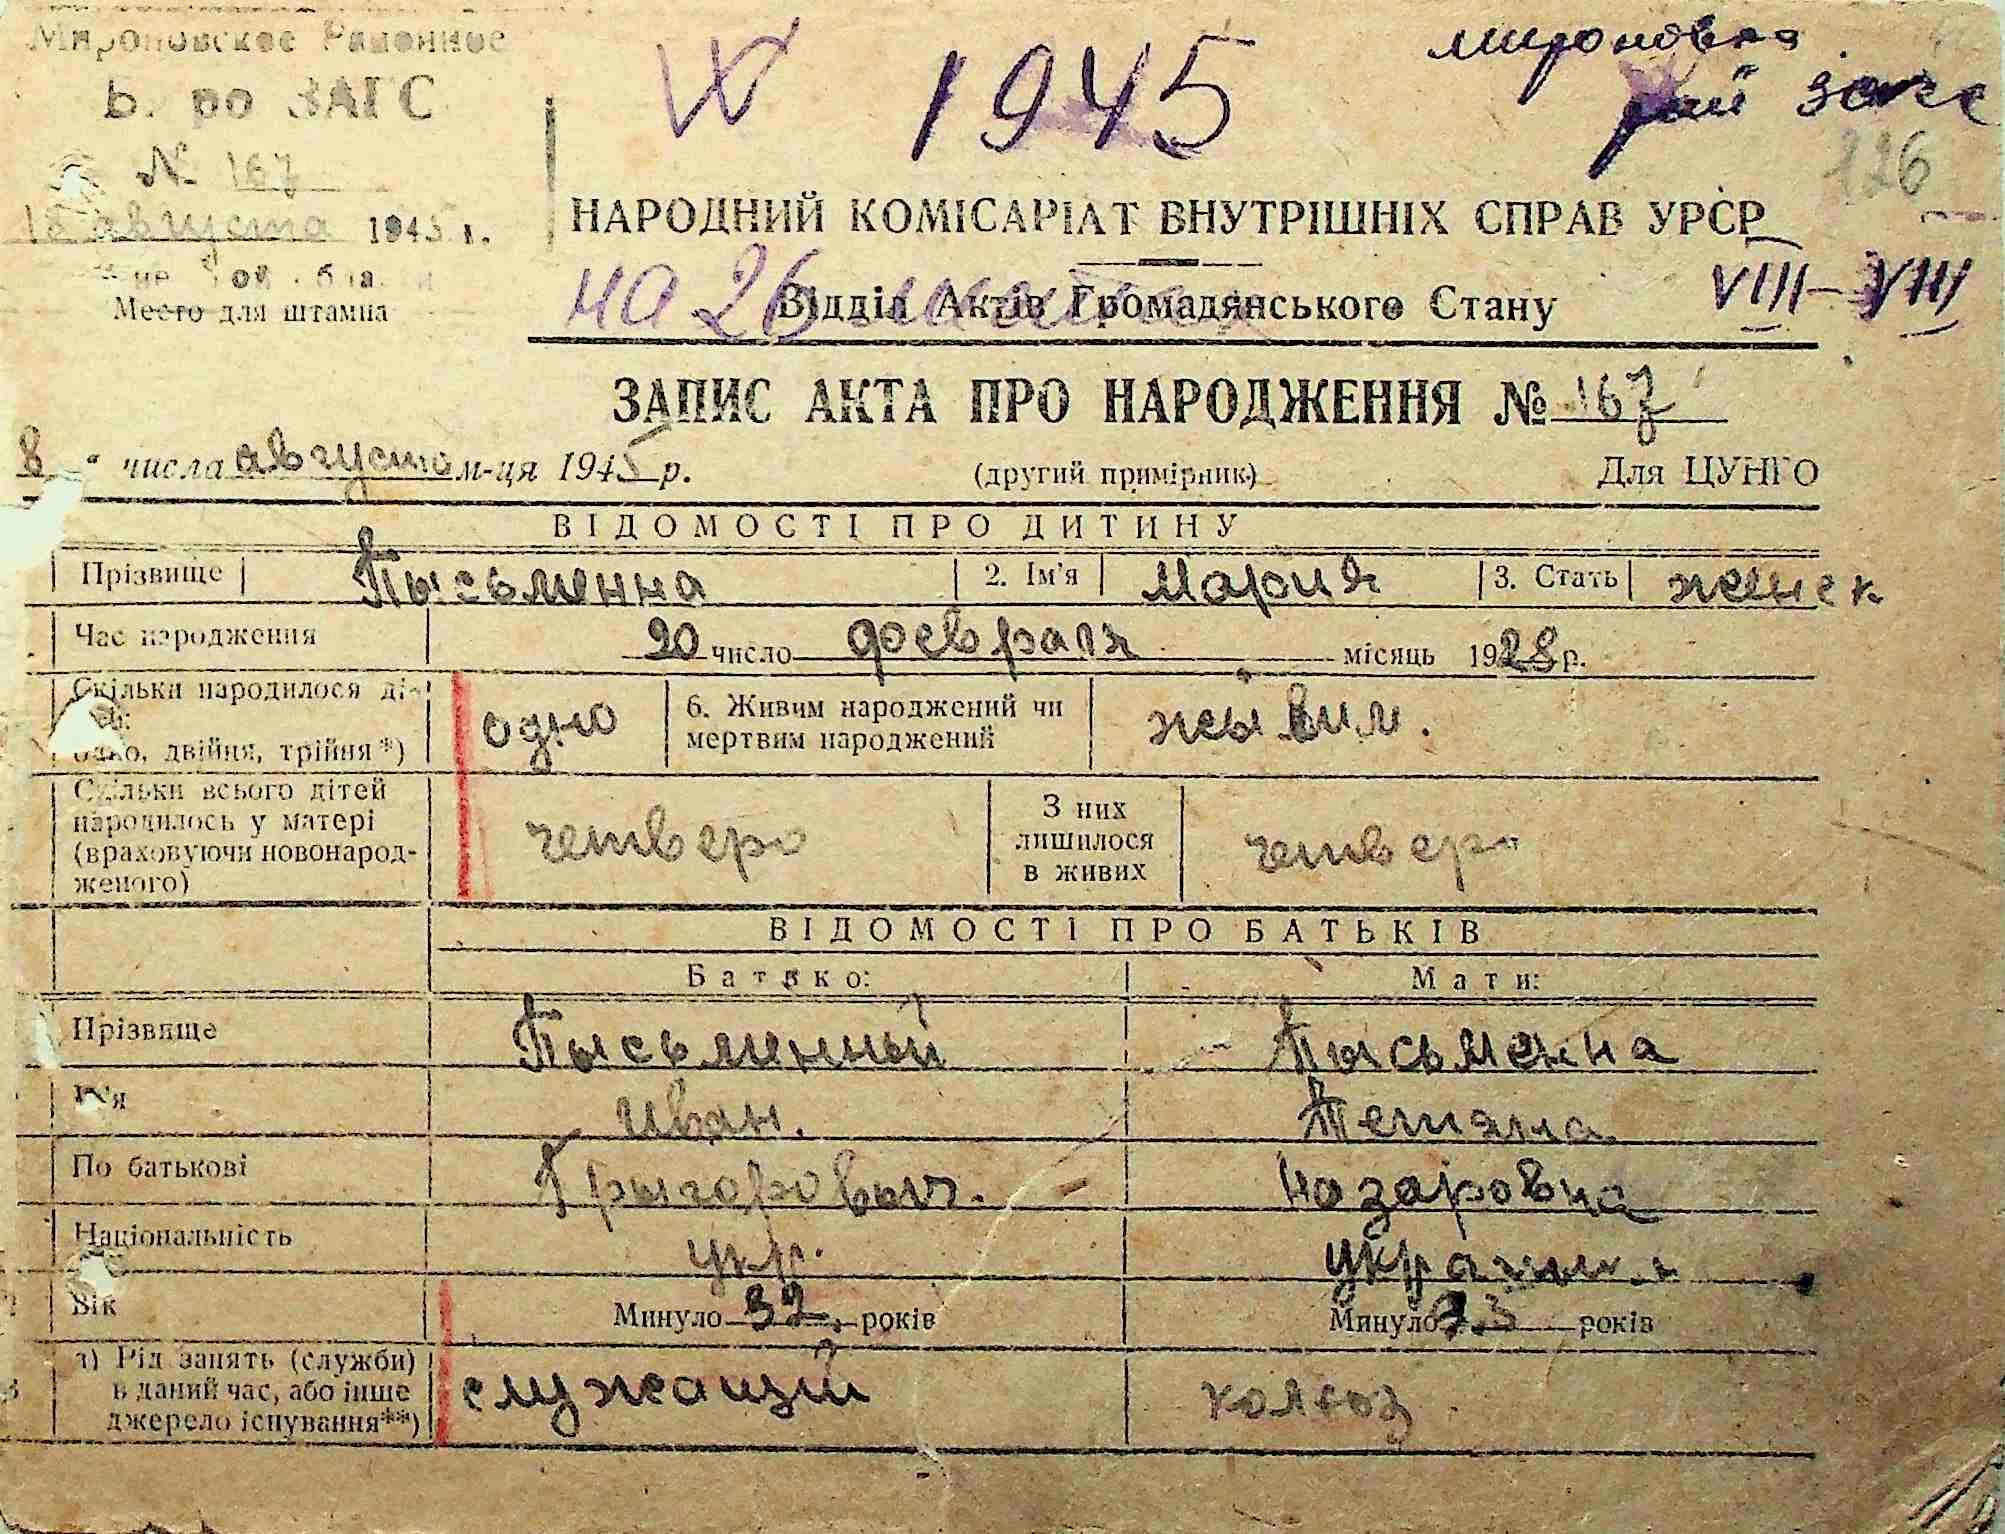 Мироновское Районное
Бюро ЗАГС
№ 167
18 августа 1945 г.
Место для штампа
1945
Мироновка
рай загс
126
НАРОДНИЙ КОМІСАРІАТ ВНУТРІШНІХ СПРАВ УРСР
на 26 листах
VIII–VIII
Відділ Актів Громадянського Стану
ЗАПИС АКТА ПРО НАРОДЖЕННЯ № 167
8 " числа августа м-ця 1945 р. (другий примірник) Для ЦУНГО
ВІДОМОСТІ ПРО ДИТИНУ
Прізвище Пысьменна 2. Ім'я Мария 3. Стать женск
Час народження 20 число февраля місяць 1928 р.
Скільки народилося ді-
тей:
одно, двійня, трійня*) одно 6. Живим народжений чи
мертвим народжений жывим.
Скільки всього дітей
народилось у матері
(враховуючи новонарод-
женого) четверо З них
лишилося
в живих четверо
ВІДОМОСТІ ПРО БАТЬКІВ
Батько: Мати:
Прізвище Пысьменный Пысьменна
Ім'я Иван. Тетяна
По батькові Грыгоровыч. Назаровна
Національність укр.
Вік Минуло 32 років Минуло 33 років
а) Рід занять (служби)
в даний час, або інше
джерело існування**) служащий колхоз